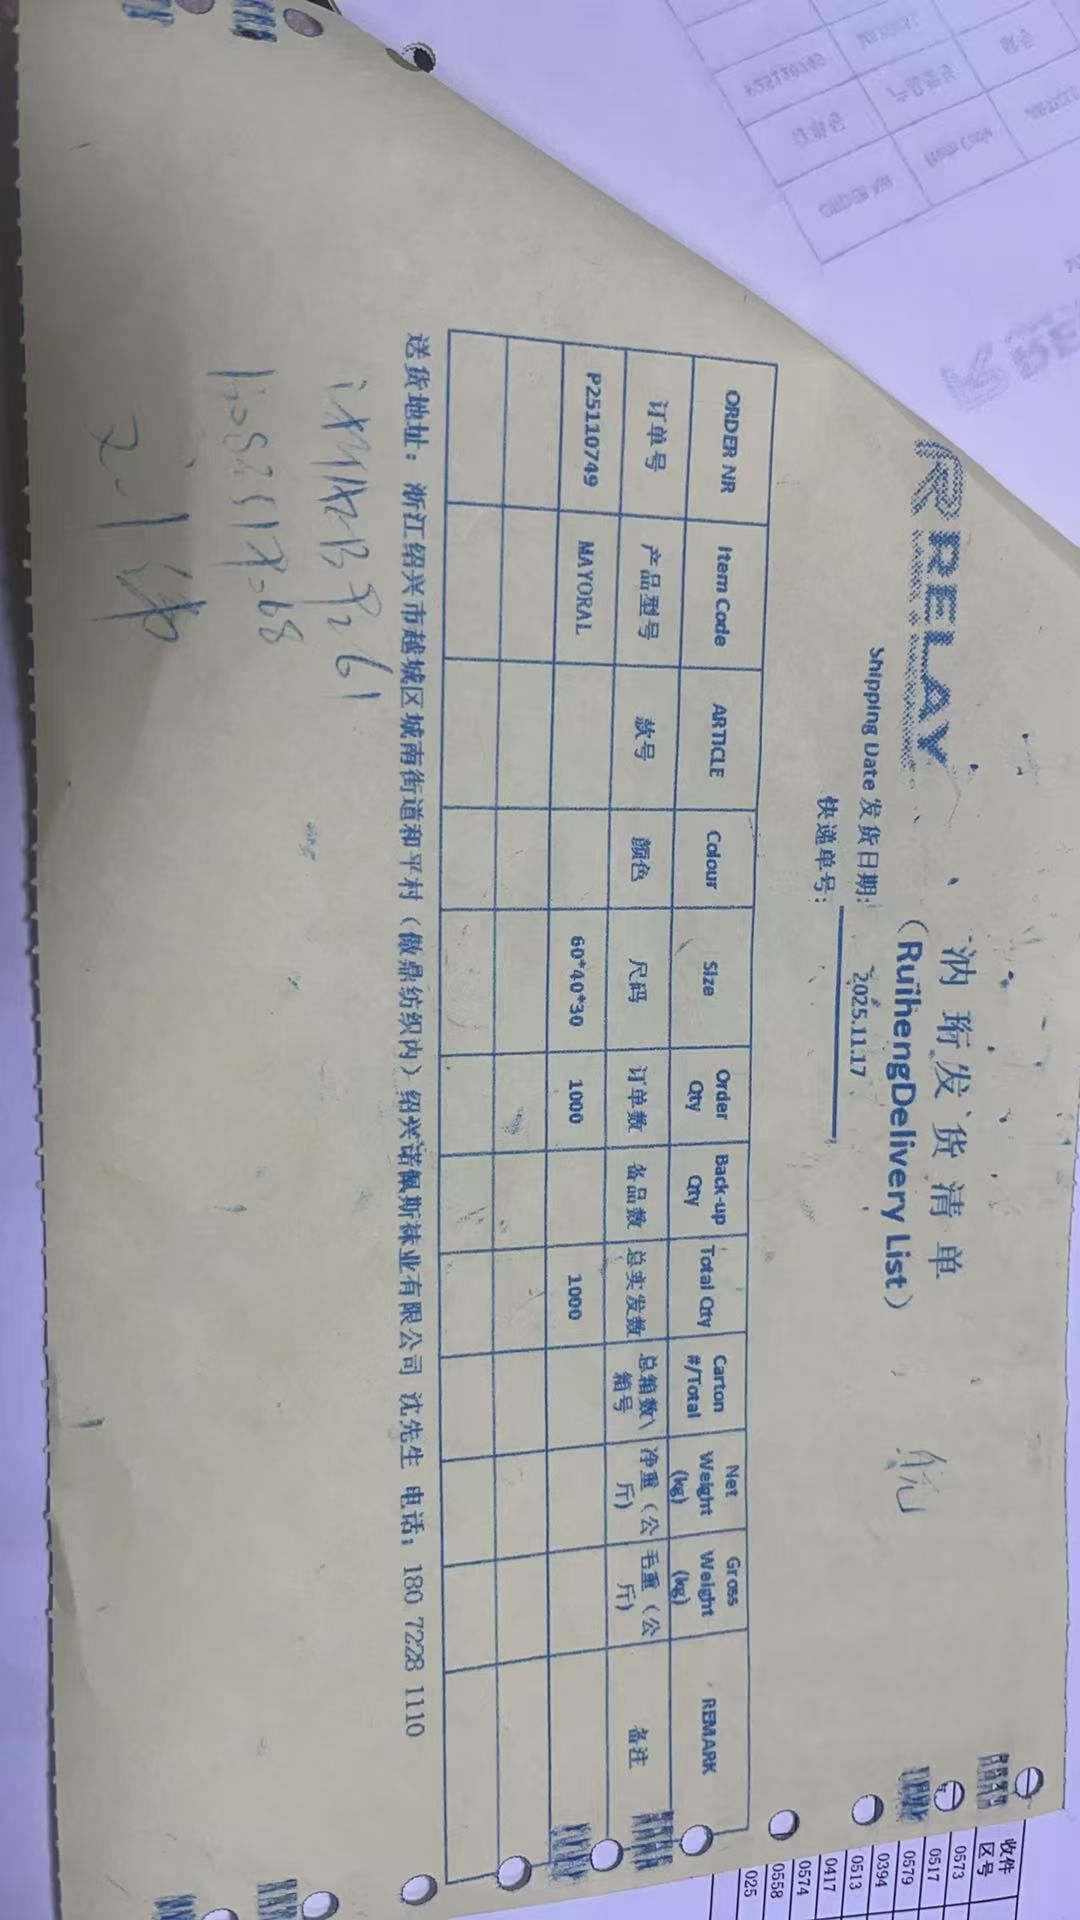 RRELAY
汭珩发货清单
(RuihengDelivery List)
Shipping Date 发货日期: 2025.11.17
快递单号:
ORDER NR Item Code ARTICLE Colour Size Order Qty Back-up Qty Total Qty Carton #/Total Net Weight (kg) Gross Weight (kg) REMARK
订单号 产品型号 款号 颜色 尺码 订单数 备品数 总实发数 总箱数\箱号 净重(公斤) 毛重(公斤) 备注
P25110749 MAYORAL 60*40*30 1000 1000
送货地址: 浙江绍兴市越城区城南街道和平村(傲鼎纺织内)绍兴诺佩斯袜业有限公司 沈先生 电话: 180 7228 1110
收件
区号
0573
0517
0579
0394
0513
0417
0574
0558
025